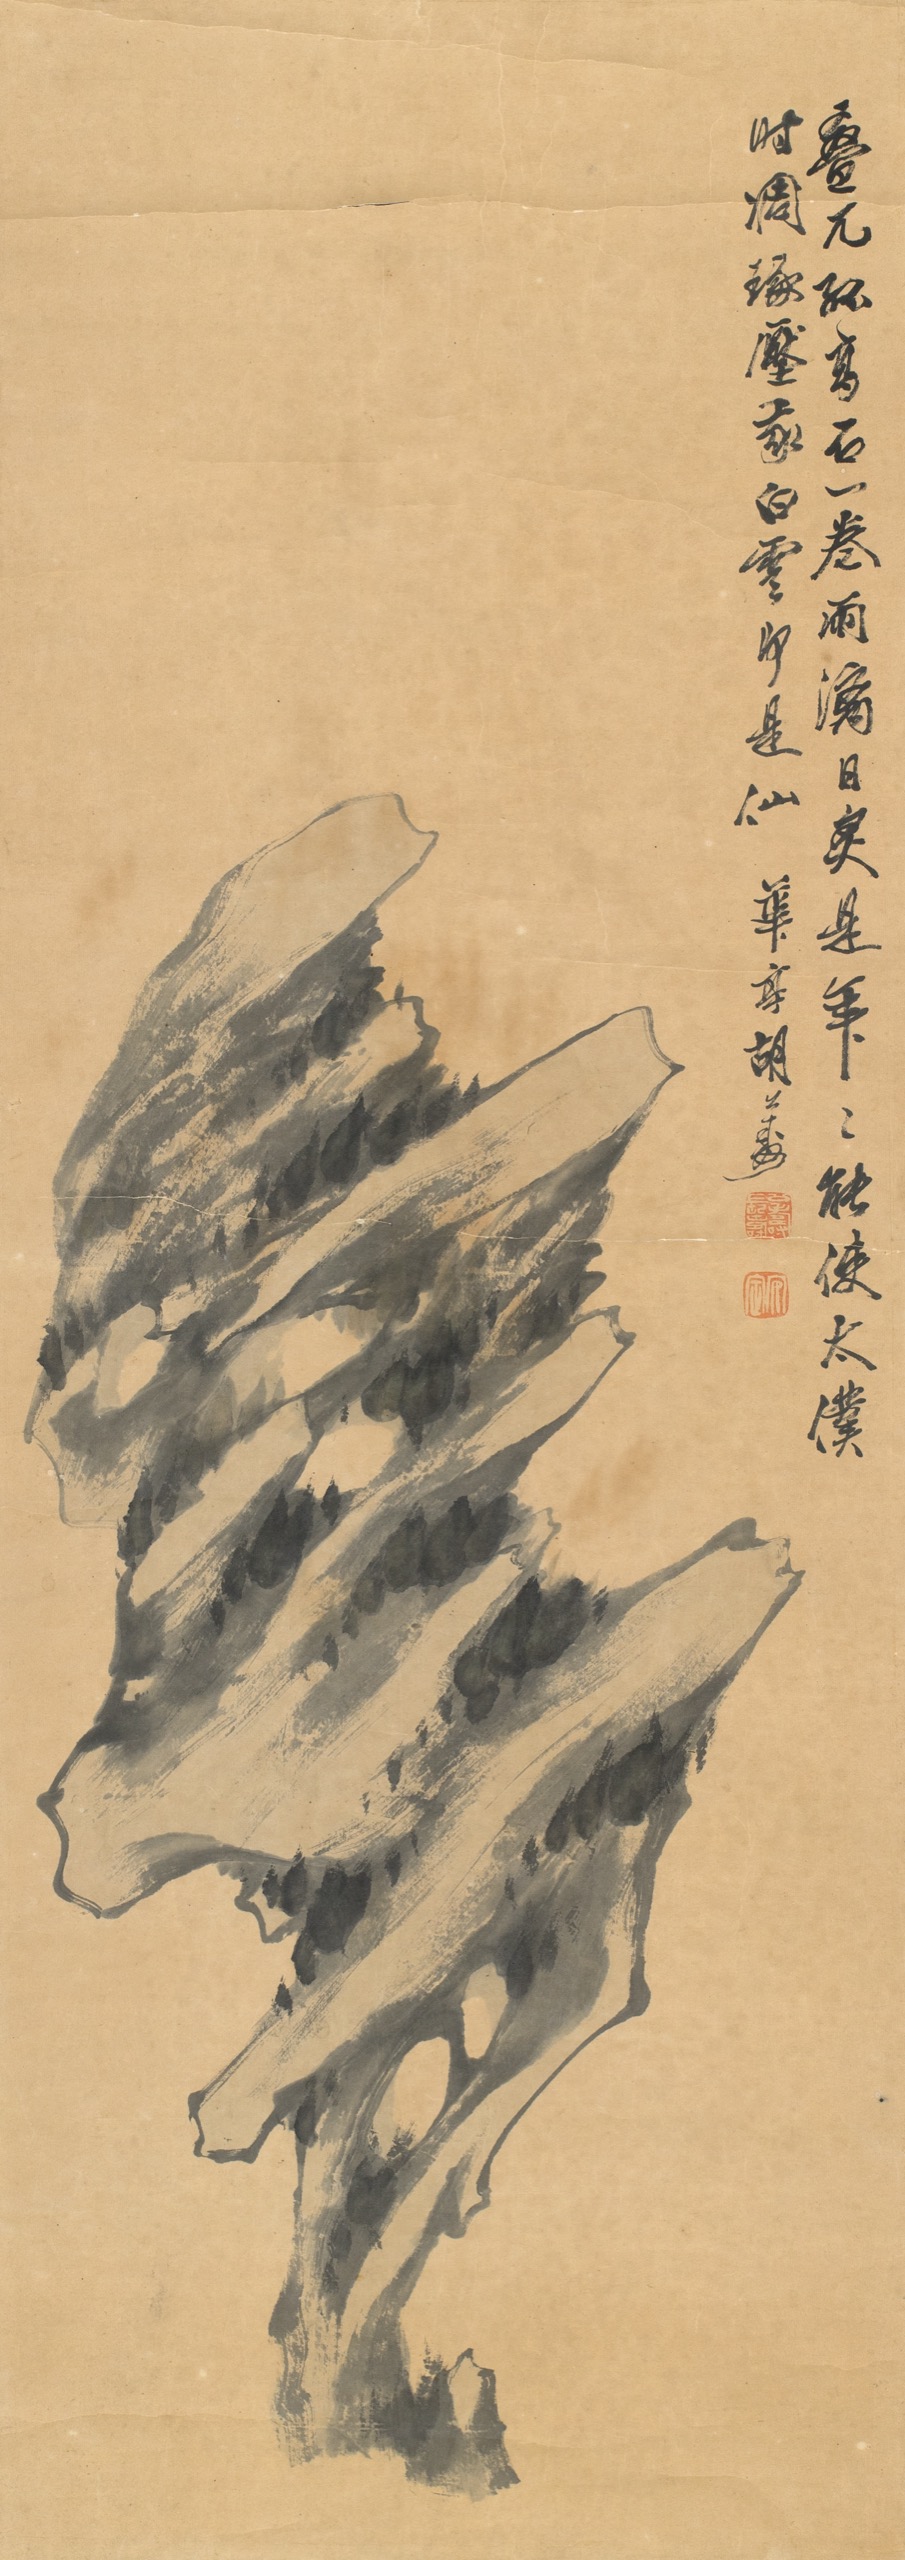 疊兀孤高石一卷雨滴日炙是年〻能使太僕
時凋琢壓蒙白雲即是仙　華亭胡公壽